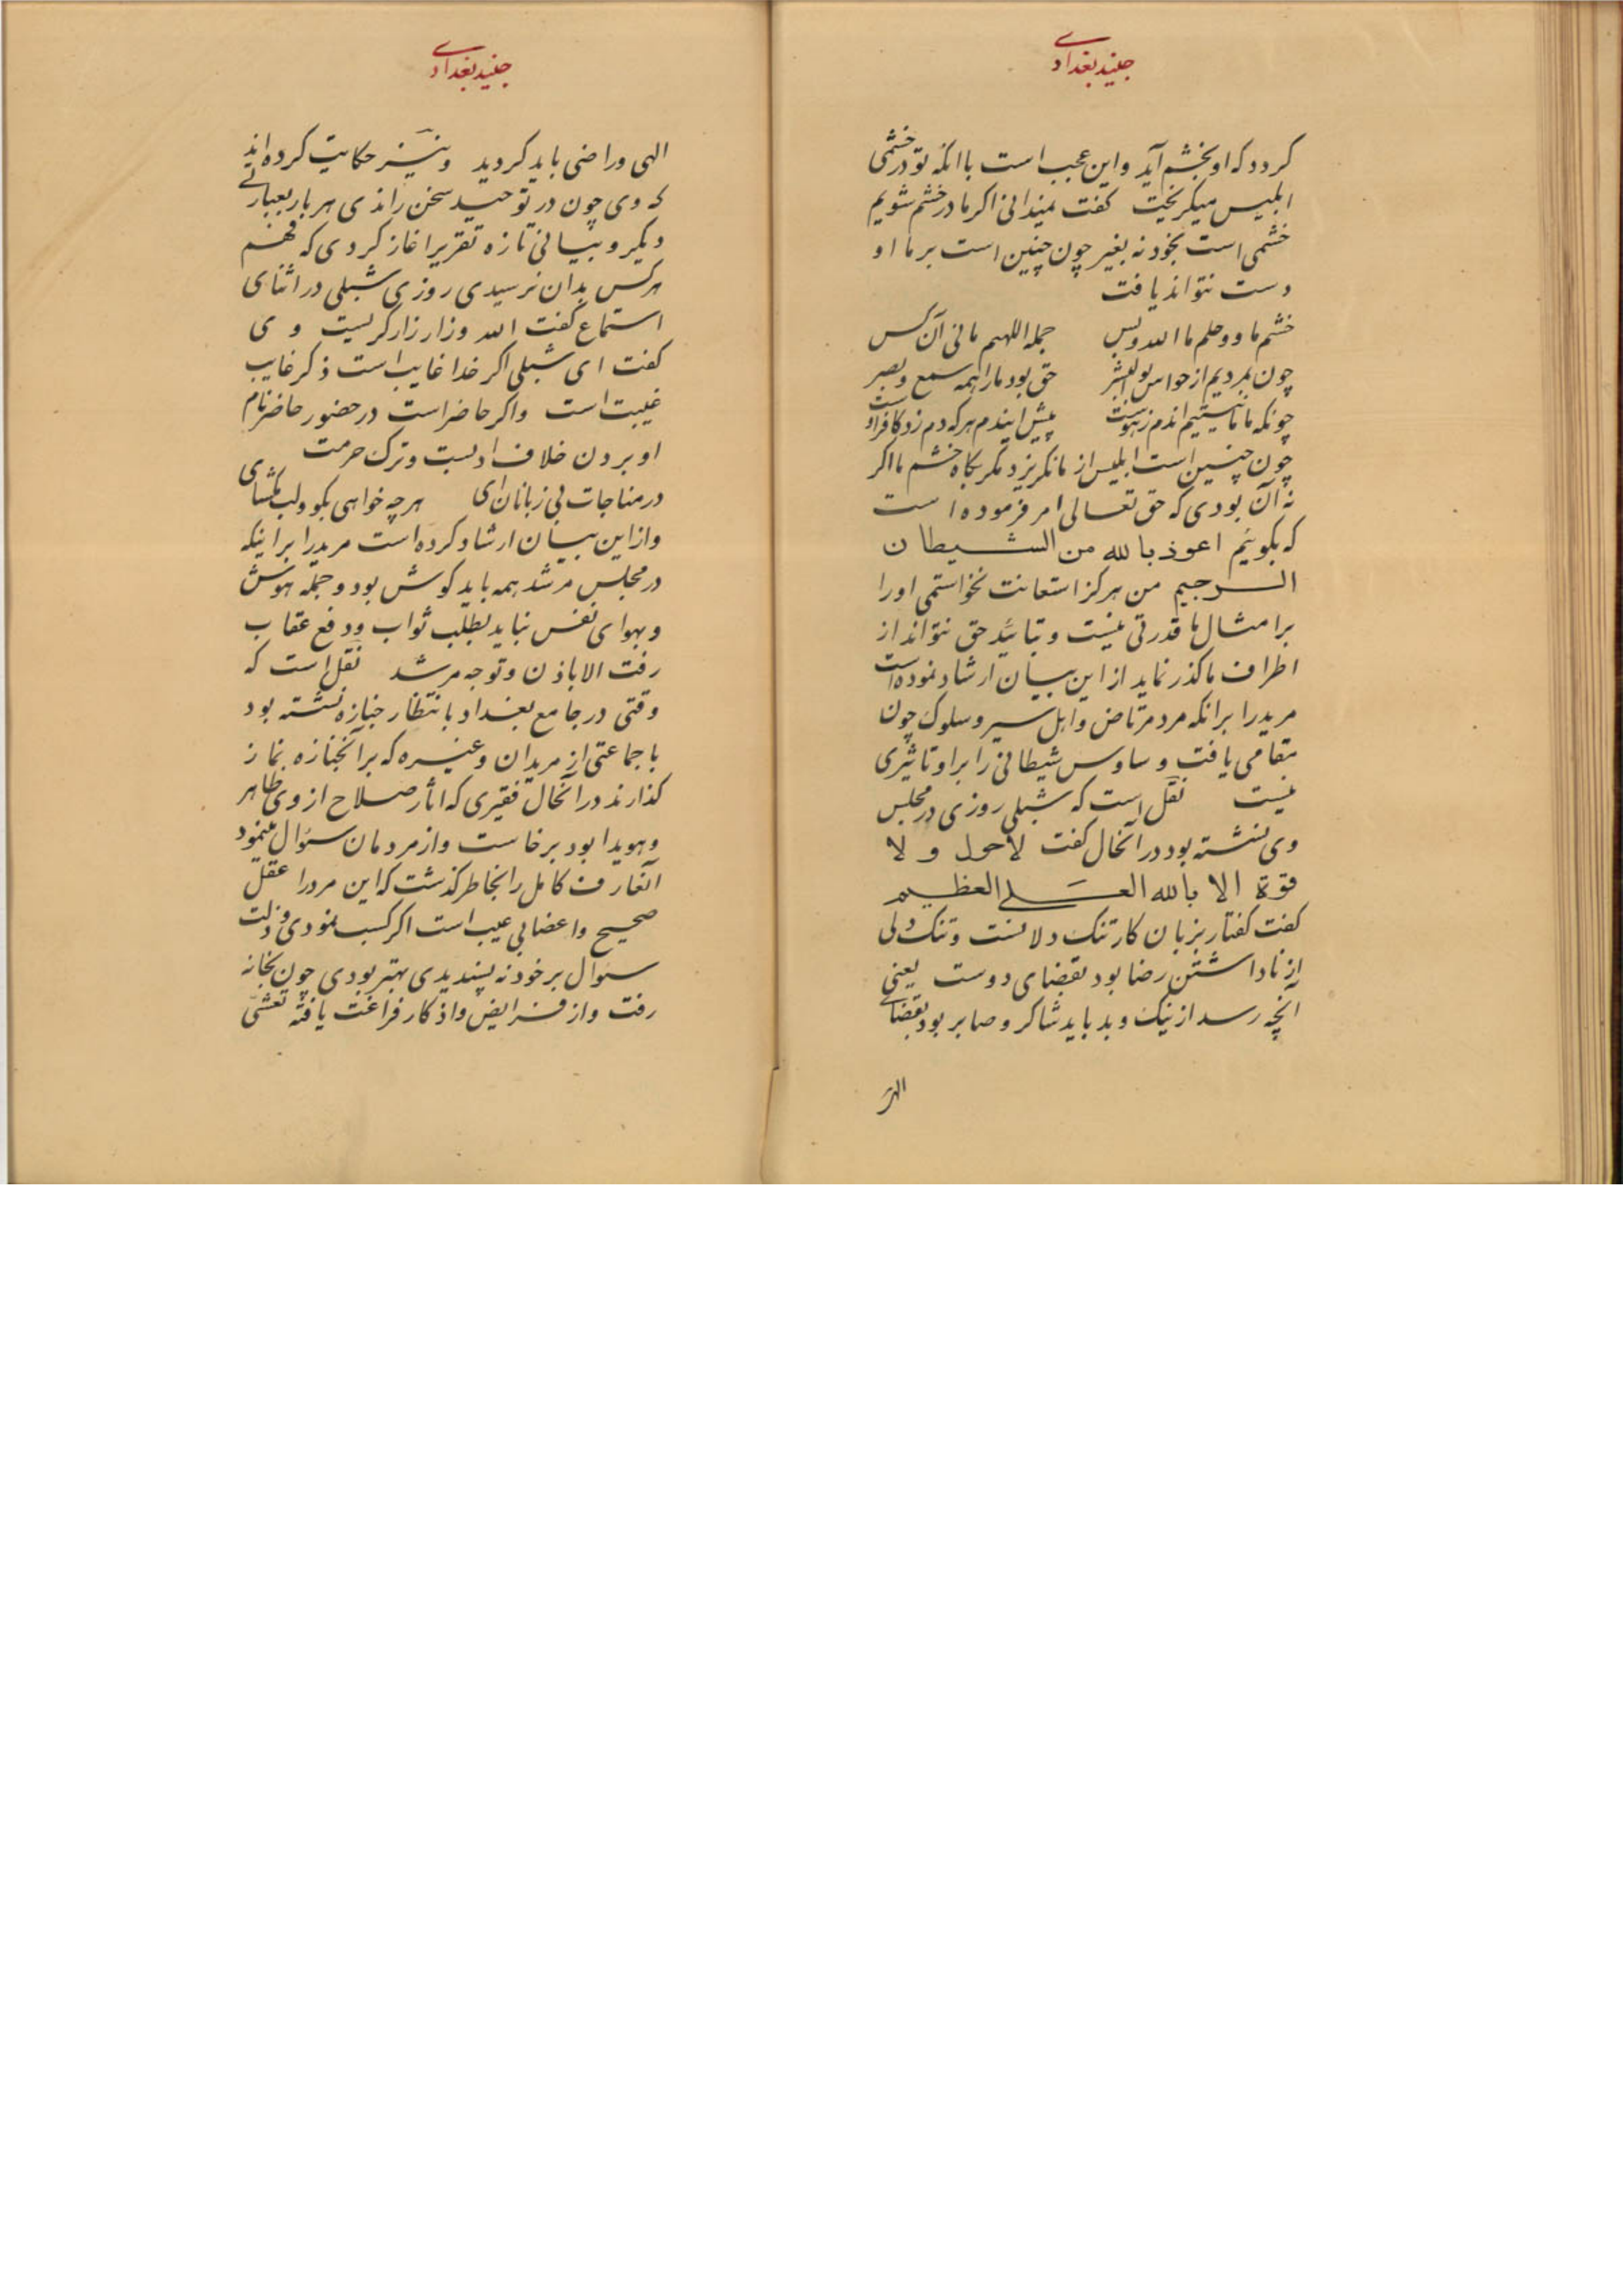 جنید بغدادی
کردد که او بخشم آید و این عجب است با آنکه تو در خشمی
ابلیس میکریخت کفت نمیدانی اکر ما در خشم شویم
خشمی است بخود نه بغیر چون چنین است بر ما او
دست نتواند یافت
خشم ما و و حلم ما الله و بس جمله اللهیم مانی آن کس
چون بمردیم از حواس بوالبشر حق بود ما را همه سمع و بصر
چونکه ما ما نیستیم این دم ز هوست پیش این دم هر که دم زد کافر اوست
چون چنین است ابلیس از ما نکریزد مکر بکاه خشم ما اکر
نه آن بودی که حق تعالی امر فرموده است
که بکوئیم اعوذ بالله من الشیطان
الرجیم من هرکز استعانت نخواستمی او را
بر امثال ما قدرتی نیست و بتائید حق نتواند از
اطراف ما کذر نماید از این بیان ارشاد نموده است
مرید را بر آنکه مرد مرتاض و اهل سیر و سلوک چون
بمقامی یافت وساوس شیطانی را بر او تاثیری
نیست نقل است که شبلی روزی در مجلس
وی نشسته بود در آنحال کفت لاحول و لا
قوة الا بالله العلی العظیم
کفت کفتار بزبان کار تنک دلانست و تنک دلی
از ناداشتن رضا بود بقضای دوست یعنی
آنچه رسد از نیک و بد باید شاکر و صابر بود بقضای
الهی
جنید بغدادی
الهی و راضی باید کردید و نیز حکایت کرده اند
که وی چون در توحید سخن راندی هر بار بعبارتی
دیکر و بیانی تازه تقریر اغاز کردی که فهم
هر کس بدان نرسیدی روزی شبلی در اثنای
استماع کفت الله و زار زار کریست وی
کفت ای شبلی اکر خدا غایب است ذکر غایب
غیبت است و اکر حاضر است در حضور حاضر نام
او بردن خلاف ادبست و ترک حرمت
در مناجات بی زبانان ای هر چه خواهی بکو ولب مکشای
و از این بیان ارشاد کرده است مرید را بر اینکه
در مجلس مرشد همه باید کوش بود و جمله هوش
و بهوای نفس نباید بطلب ثواب و دفع عقاب
رفت الا باذن و توجه مرشد نقل است که
وقتی در جامع بغداد بانتظار جنازه نشسته بود
با جماعتی از مریدان و غیره که بر آنجنازه نماز
کذارند در آنحال فقیری که اثار صلاح از وی ظاهر
و هویدا بود برخاست و از مردمان سئوال مینمود
آنعارف کامل را بخاطر کذشت که این مرد را عقل
صحیح و اعضا بی عیب است اکر کسب نمودی و ذلت
سئوال بر خود نه پسندیدی بهتر بودی چون بخانه
رفت و از فرایض و اذکار فراغت یافته تعشی